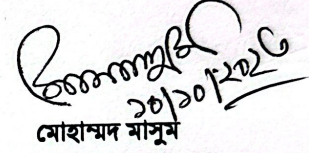 ১০/১০/২০২৩
মোহাম্মদ মাসুম